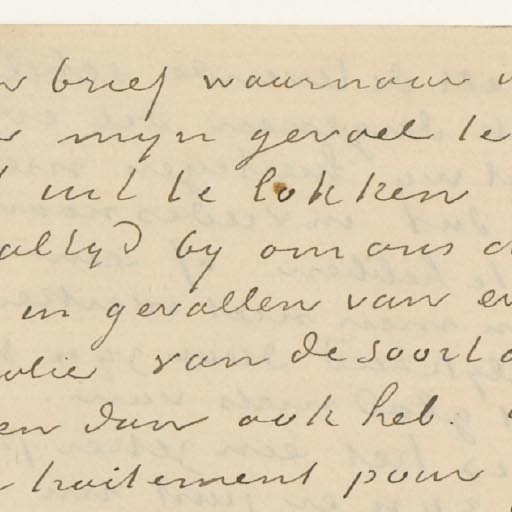 brief waarnaar
mijn gevoel te
uit te lokken
altijd by om ons
in gevallen van
van de soort
dan ook heb.
traitement pour